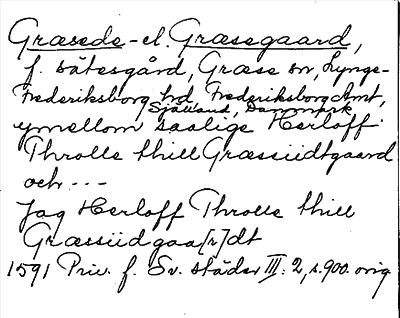 Græsede- el. Græsegaard,
f. sätesgård, Græse sn, Lynge-
Frederiksborg hd, Frederiksborg Amt,
Sjælland, Danmark
ymellom saalige Herloff
Throlle thill Græssiidtgaard
och ---
Jag Herloff Throlle thill
Græssiidgaa[r]dt
1591 Priv. f. Sv. städer III: 2, s. 900. orig